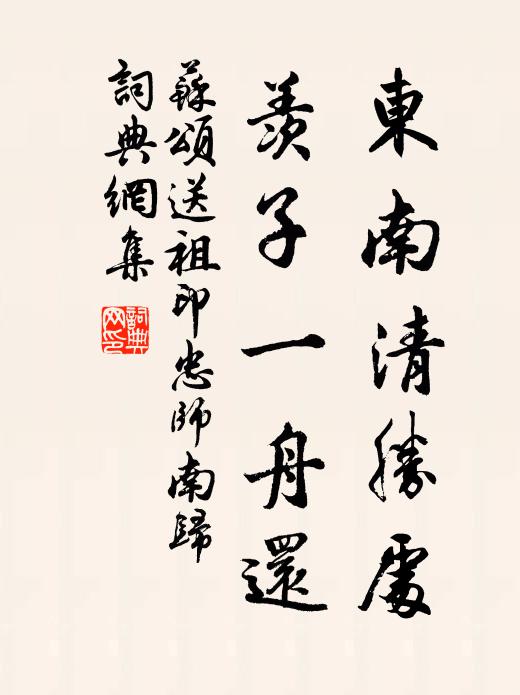 東南清勝處
羨子一舟還
蘇頌送祖印忠師南歸
詞典網集
詞典网印